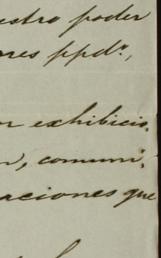 estro poder
res ppdᵒ,
or exhibicio.
n, comuni.
aciones que